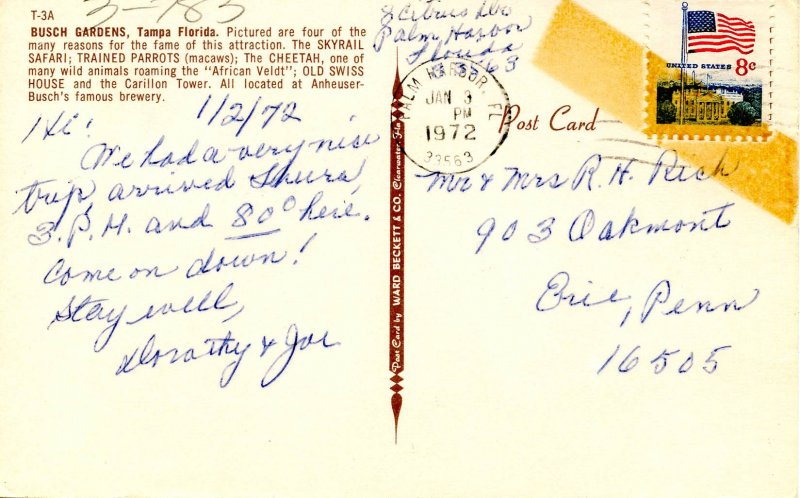 T-3A
3-783
BUSCH GARDENS, Tampa Florida. Pictured are four of the
many reasons for the fame of this attraction. The SKYRAIL
SAFARI; TRAINED PARROTS (macaws); The CHEETAH, one of
many wild animals roaming the "African Veldt"; OLD SWISS
HOUSE and the Carillon Tower. All located at Anheuser-
Busch's famous brewery.
1/2/72
Hi!
We had a very nice
trip, arrived Thurs,
3. P.M. and 80° here.
Come on down!
Stay well,
Dorothy & Joe
Post Card by WARD BECKETT & CO. Clearwater, Fla.
Citrus
Palm Harbor
Florida
PALM HARBOR, FL
JAN 3
PM
1972
33563
UNITED STATES 8c
Post Card
Mr & Mrs R. H. Rich
903 Oakmont
Erie, Penn
16505